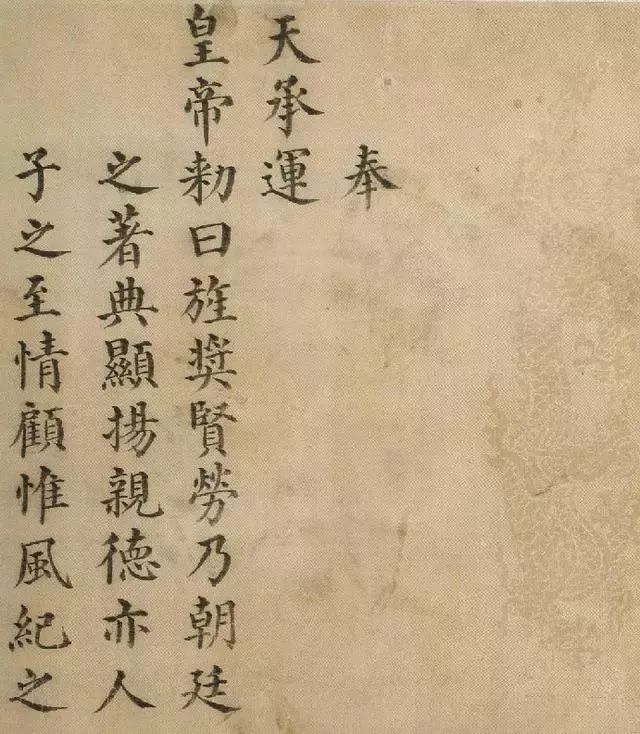 奉
天承運
皇帝勑曰旌奬賢勞乃朝廷
之著典顯揚親德亦人
子之至情顧惟風紀之